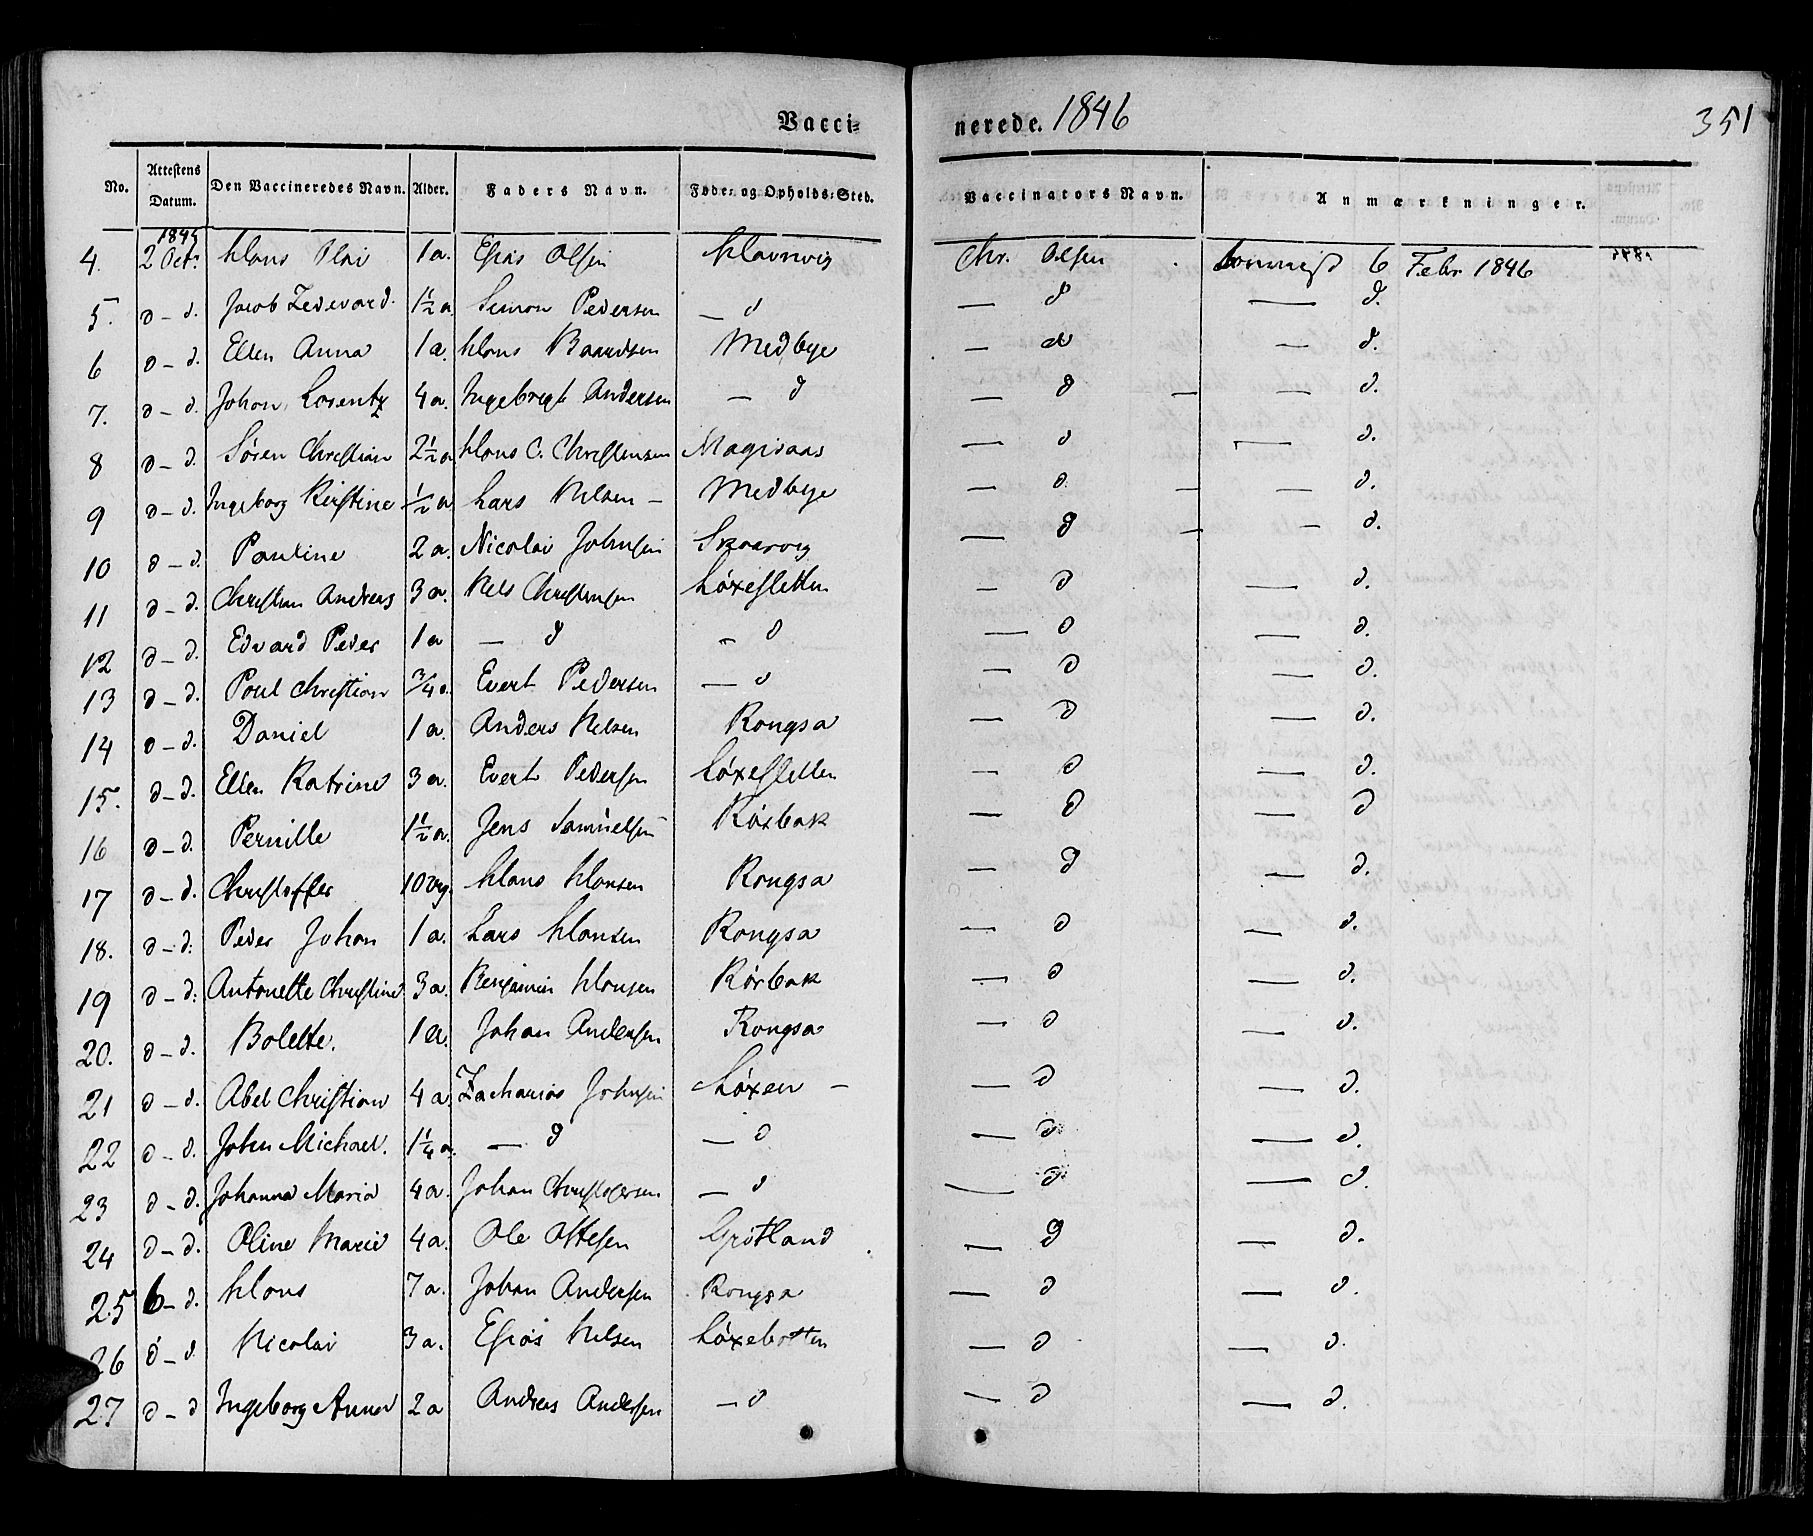 Vaccinerede. 1846 351
No. Attestens Datum. Den Vaccineredes Navn. Alder. Faders Navn. Føde- og Opholds-Sted. Vaccinators Navn. Anmærkninger.
1845
4. 2 Octr. Hans Olai 1 a. Esias Olsen Havnvig Chr. Olsen 6 Febr 1846
5. d – d. Jacob Zedevard. 1½ a Simon Pedersen — d — d — d.
6 d – d. Ellen Anna 1 a. Hans Baardsen Medbye — d — d.
7. d – d. Johan Lorentz 4 a. Ingebregt Andersen — d — d — d.
8 d – d. Søren Christian 2½ a Hans C. Christensen Magisaas — d — d.
9 d – d. Ingeborg Kirstine ½ a Lars Nilsen – Medbye — d — d.
10 d – d. Pauline 2 a. Nicolai Johnsen Skaarvig — d — d.
11 d – d. Christian Andreas 3 a. Nels Christensen Løxesletten — d — d.
12 d – d. Edvard Peder 1 a — d – d — d — d.
13 d – d. Poul Christian ¾ a. Evert Pedersen — d — d — d.
14 d – d. Daniel 1 a. Anders Nelsen Rongsa — d — d.
15. d – d. Ellen Katrine 3 a. Evert Pedersen Løxesletten — d — d.
16 d – d. Pernille 1½ a. Jens Samuelsen Rørbak — d — d
17 d – d. Christoffer 10 Hans Hansen Rongsa — d — d.
18. d – d. Peder Johan 1 a. Lars Hansen Rongsa — d — d.
19 d – d. Antonette Christine 3 a. Benjamin Hansen Rørbak — d — d.
20. d – d. Bolette. 1 a. Johan Andersen Rongsa — d — d.
21 d – d. Abel Christian 4 a Zacharias Johnsen Løxen – — d — d.
22 d – d. John Michael. 1¼ a. — d — d — d — d.
23 d – d. Johanna Maria 4 a. Johan Christofersen — d — d — d.
24 d – d. Oline Marie 4 a. Ole Ottesen Grøtland — d — d.
25 6 – d. Hans 7 a. Johan Andersen Rongsa — d — d.
26 d – d Nicolai 3 a. Esias Nilsen Løxebotten — d — d.
27 d – d Ingeborg Anna 2 a Andreas Andersen — d — d — d.